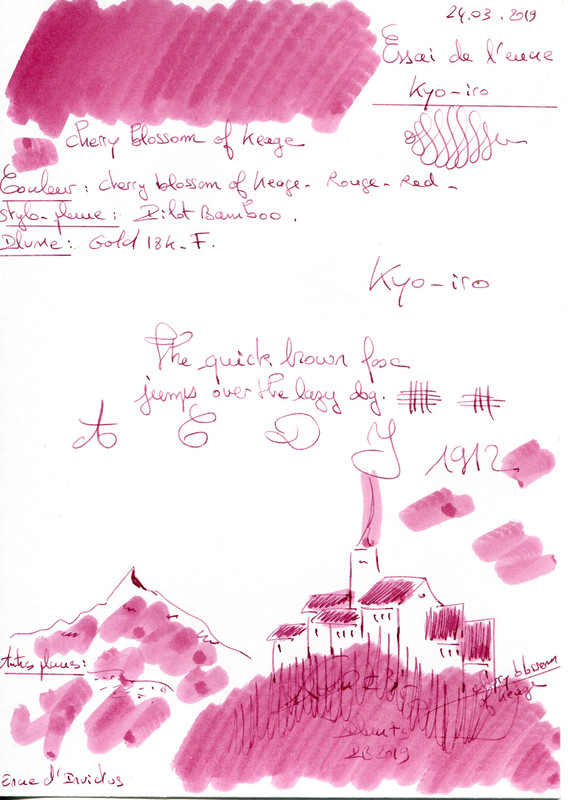 24.03.2019
Essai de l'encre
Kyo-iro
Cherry blossom of Keage
Couleur: Cherry blossom of Keage - Rouge-Red -
Stylo-plume: Pilot Bamboo.
Plume: Gold 18k-F.
Kyo-iro
The quick brown fox
jumps over the lazy dog.
A E D J
1912
Autres plumes:
Cherry blossom
of Keage
2019
Encre d'Invictus